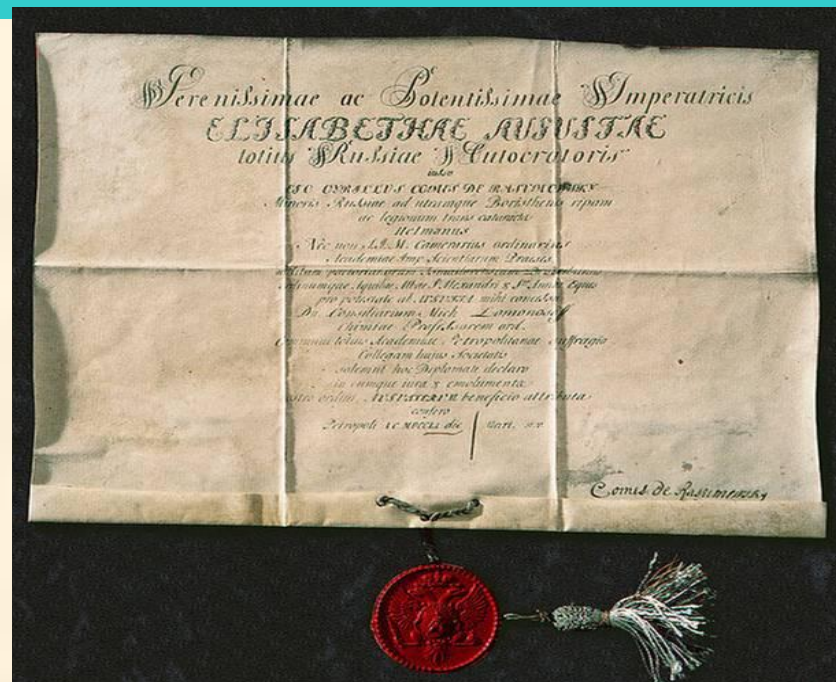 Serenissimae ac Potentissimae Imperatricis
ELISABETHAE AUGUSTAE
totius Russiae Autocratoris
iussu
CYRILLUS COMES DE RASUMOWSKY
Minoris Russiae ad utramque Boristhenis ripam
ac legionum trans cataractas
Hetmanus
Nec non S.I.M. Camerarius ordinarius
Academiae Imp. Scientiarum Praeses
ordinumque Aquilae Albae S. Alexandri & Stae Annae Eques
pro potestate ab AUGUSTA mihi concessa
Dn. Consiliarium Mich. Lomonosoff
Chimiae Professorem ord.
Communi totius Academiae Petropolitanae suffragio
Collegam hujus Societatis
solemni hoc Diplomate declaro
in eumque iura & emolumenta
ordini AUGUSTORUM beneficio attributa
confero
Petropoli die Mart.
Comes de Rasumowsky